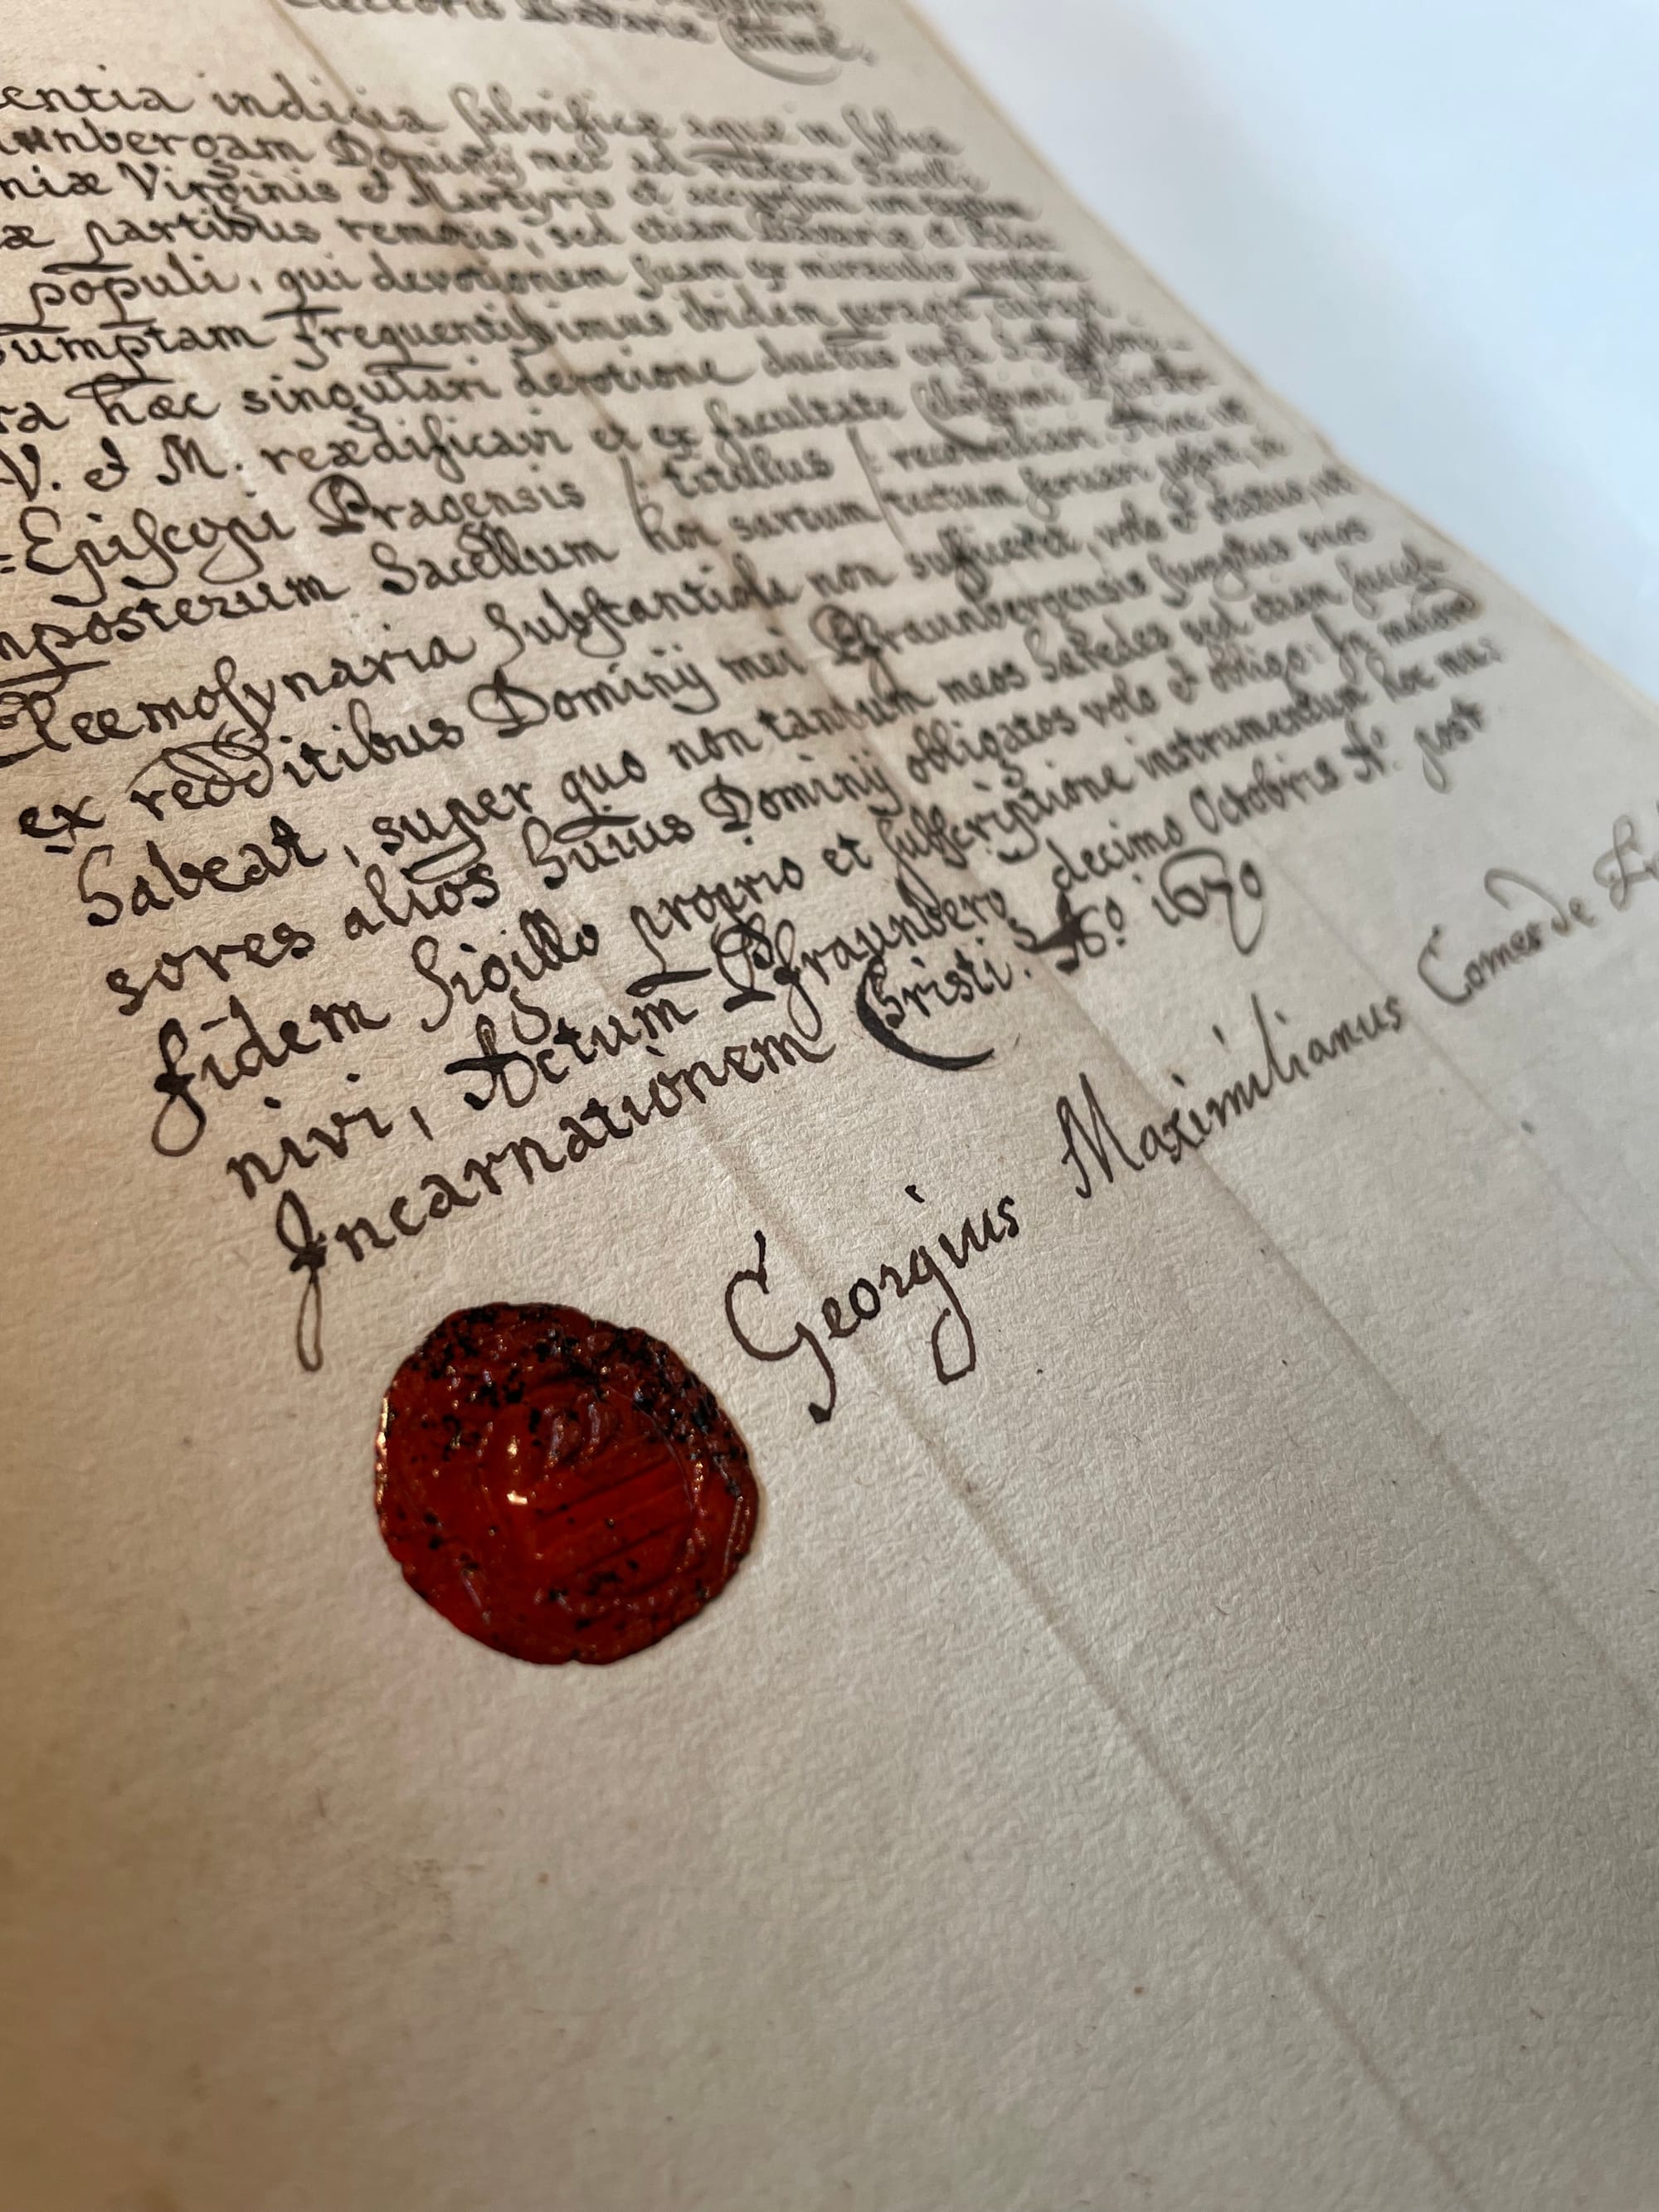 Electoris Bavariæ
entia indicia salvificæ aquæ in
unbergam Dominij mei ad
niæ Virginis et Martyris et
æ partibus remotis, sed etiam Bavariæ et
populi, qui devotionem suam ex miraculis
sumptam frequentissimus ibidem peragit,
ra hæc singulari devotione ductus
V. et M. reædificavi et ex facultate
=Episcopi Pragensis /: titulus :/ reconciliari.
nposterum Sacellum hoc sartum tectum
Eleemosynaria substantiola non sufficeret, volo et statuo, ut
ex redditibus Dominij mei Pfraunbergensis sumptus suos
habeat, super quo non tantum meos hæredes sed etiam succes-
sores alios huius Dominij obligatos volo et obligo: In maiorem
fidem sigillo proprio et subscriptione instrumentum hoc mu:
nivi, Actum Pfraunberg decimo Octobris Aº. post
Incarnationem Christi. Aº. 1670
Georgius Maximilianus Comes de